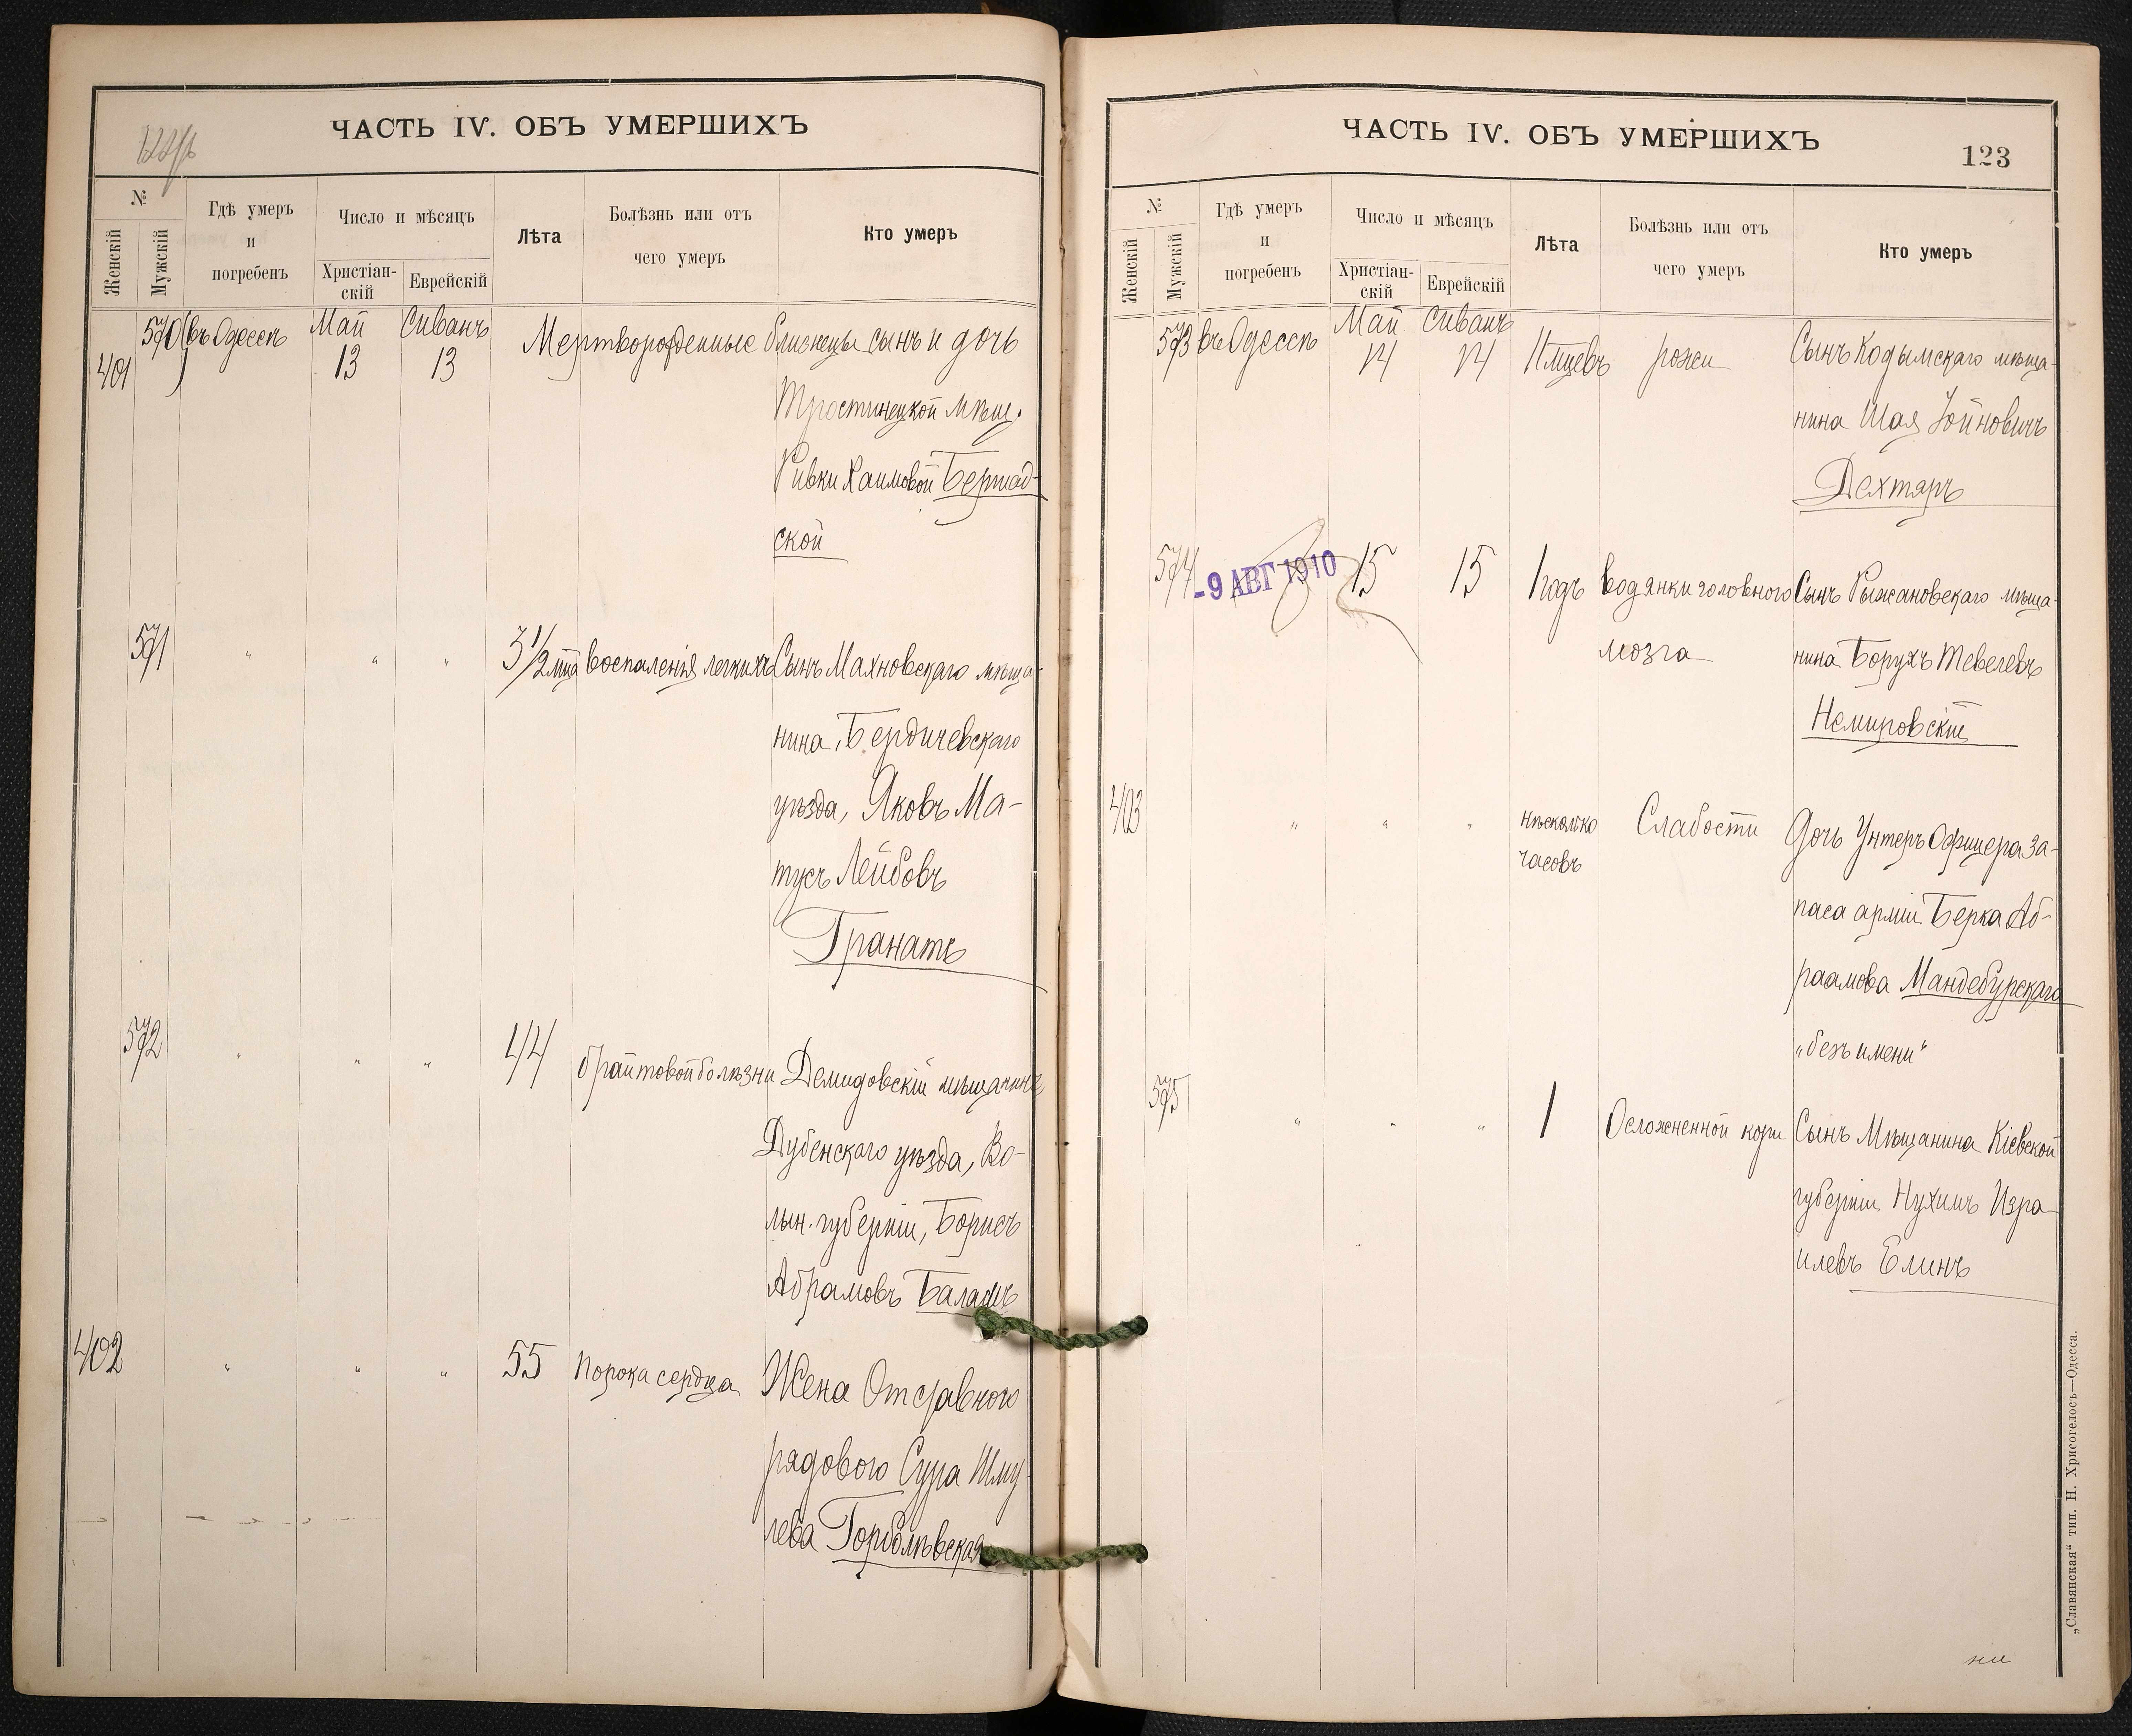 ЧАСТЬ IV. ОБЪ УМЕРШИХЪ
№
Женскій
Мужскій
Гдѣ умеръ
и
погребенъ
Число и мѣсяцъ
Христіан-
скій
Еврейскій
Лѣта
Болѣзнь или отъ
чего умеръ
Кто умеръ
570 въ Одессѣ Май Сиванъ Мертворожденные близнецы сынъ и дочь
401 13 13
Тростинецкой мѣщ.
Ривки Хаимовой Бершад-
ской
571 " " " 3 1/2 мца воспаленія легкихъ Сынъ Махновскаго мѣща-
нина, Бердичевскаго
уѣзда, Яковъ Ма-
тусъ Лейбовъ
Гранатъ
572 " " " 44 брайтовой болѣзни Демидовскій мѣщанинъ
Дубенскаго уѣзда, Во-
лын. губерніи, Борисъ
Абрамовъ Балашъ
402 " " " 55 порока сердца Жена Отставного
рядового Сура Шму-
лева
ЧАСТЬ IV. ОБЪ УМЕРШИХЪ
123
№
Женскій
Мужскій
Гдѣ умеръ
и
погребенъ
Число и мѣсяцъ
Христіан-
скій
Еврейскій
Лѣта
Болѣзнь или отъ
чего умеръ
Кто умеръ
573 въ Одессѣ Май Сиванъ
14 14 рожи Сынъ Кодымскаго мѣща-
нина Шая Іойновичъ
Дехтяръ
574 -9 АВГ 1910 15 15 1 годъ водянки головного Сынъ Рыжановскаго мѣща-
мозга нина Борухъ Тевелевъ
Немировскій
403 " " " нѣсколько Слабости Дочь Унтеръ Офицера за-
часовъ
паса арміи Берка Аб-
раамова Мандебурскаго
„безъ имени“
575 " " " 1 Осложненной кори Сынъ Мѣщанина Кіевской
губерніи Нухимъ Изра-
илевъ Елинъ
„Славянская“ тип. Н. Хрисогелосъ—Одесса.